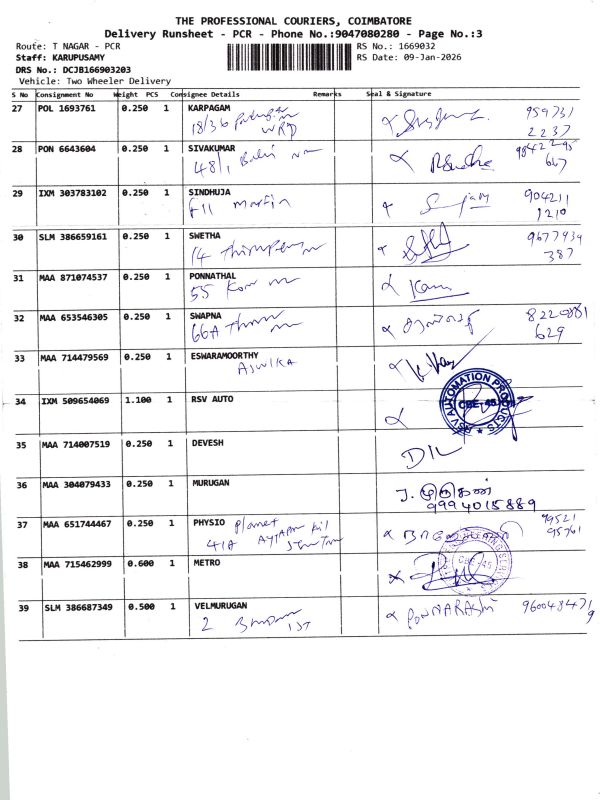 THE PROFESSIONAL COURIERS, COIMBATORE
Delivery Runsheet - PCR - Phone No.:9047080280 - Page No.:3
Route: T NAGAR - PCR
RS No.: 1669032
Staff: KARUPUSAMY
RS Date: 09-Jan-2026
DRS No.: DCJB166903203
Vehicle: Two Wheeler Delivery
S No Consignment No Weight PCS Consignee Details Remarks Seal & Signature
27 POL 1693761 0.250 1 KARPAGAM 959731
18/36 WRD 2237
28 PON 6643604 0.250 1 SIVAKUMAR
48/1 667
29 IXM 303783102 0.250 1 SINDHUJA 904211
F11 Martin 1210
30 SLM 386659161 0.250 1 SWETHA 9677934
14 387
31 MAA 871074537 0.250 1 PONNATHAL
55
32 MAA 653546305 0.250 1 SWAPNA
66A 629
33 MAA 714479569 0.250 1 ESWARAMOORTHY
ASWIKA
34 IXM 509654069 1.100 1 RSV AUTO
RSV AUTOMATION PRODUCTS
CBE-45
35 MAA 714007519 0.250 1 DEVESH
36 MAA 304079433 0.250 1 MURUGAN
முருகன்
9994015889
37 MAA 651744467 0.250 1 PHYSIO Planet 99521
41A 95761
38 MAA 715462999 0.600 1 METRO
CBE-45
39 SLM 386687349 0.500 1 VELMURUGAN PONNARASHI
2 1ST